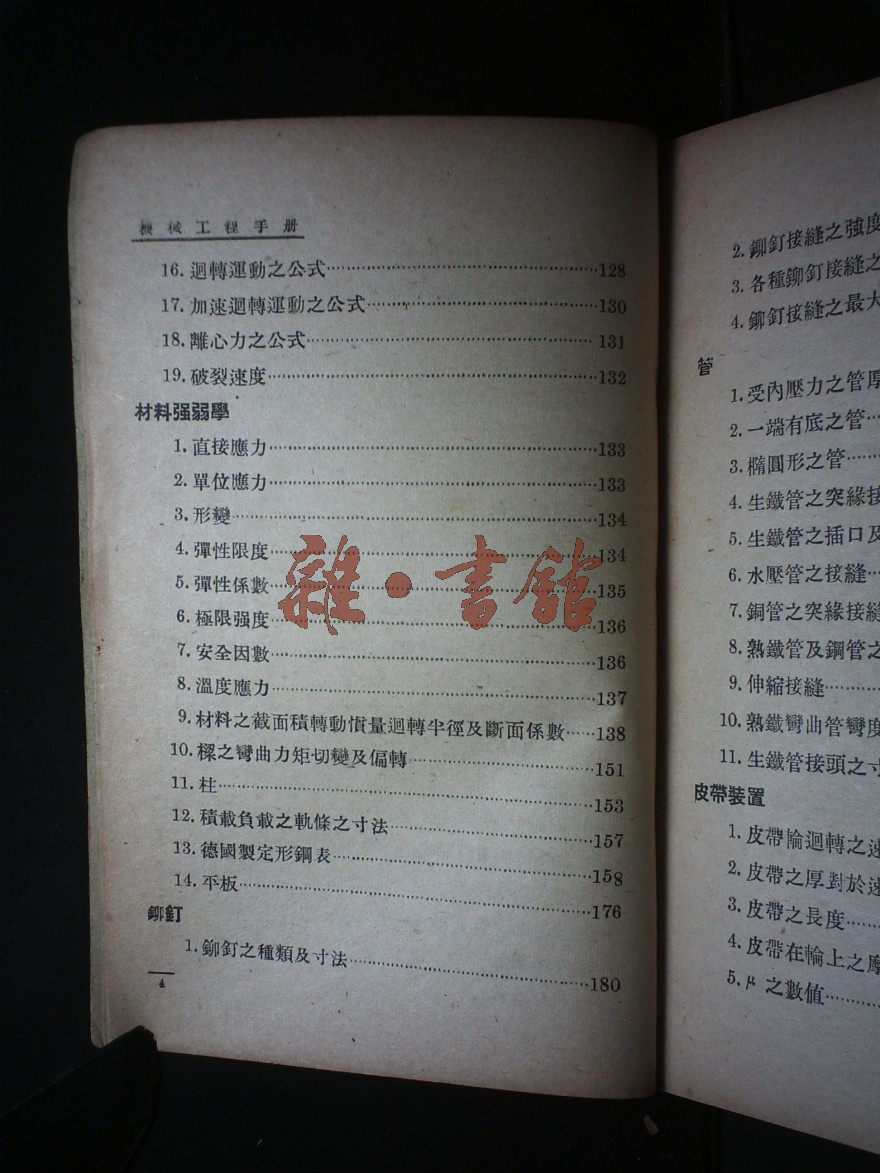 機械工程手册
16. 迴轉運動之公式……128
17. 加速迴轉運動之公式……130
18. 離心力之公式……131
19. 破裂速度……132
材料强弱學
1. 直接應力……133
2. 單位應力……133
3. 形變……134
4. 彈性限度……134
5. 彈性係數……135
6. 極限强度……136
7. 安全因數……136
8. 溫度應力……137
9. 材料之截面積轉動慣量迴轉半徑及斷面係數……138
10. 樑之彎曲力矩切變及偏轉……151
11. 柱……153
12. 積載負載之軌條之寸法……157
13. 德國製定形鋼表……158
14. 平板……176
鉚釘
1. 鉚釘之種類及寸法……180
4
雜·書館
2. 鉚釘接縫之強度
3. 各種鉚釘接縫之
4. 鉚釘接縫之最大
管
1. 受內壓力之管厚
2. 一端有底之管…
3. 橢圓形之管……
4. 生鐵管之突緣接
5. 生鐵管之插口及
6. 水壓管之接縫…
7. 銅管之突緣接縫
8. 熟鐵管及鋼管之
9. 伸縮接縫……
10. 熟鐵彎曲管彎度
11. 生鐵管接頭之寸
皮帶裝置
1. 皮帶輪迴轉之速
2. 皮帶之厚對於速
3. 皮帶之長度……
4. 皮帶在輪上之摩
5. μ之數值……